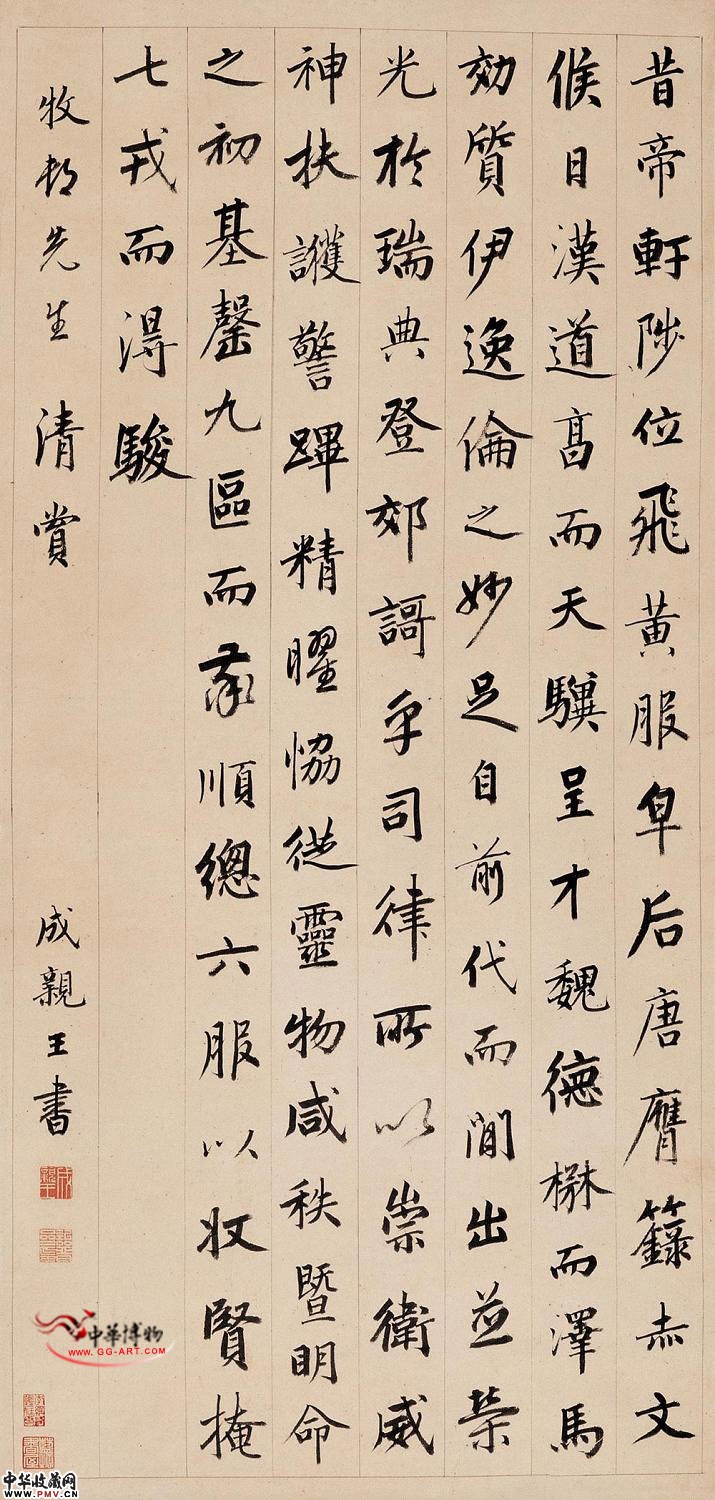 昔帝軒陟位飛黃服皁后唐膺籙赤文
候日漢道高而天驥呈才魏德楙而澤馬
効質伊逸倫之妙足自前代而間出並榮
光於瑞典登郊謌乎司律所以崇衛威
神扶護警蹕精曜恊從靈物咸秩暨明命
之初基罄九區而率順總六服以收賢掩
七戎而得駿
牧邨先生清賞 成親王書
中華博物
www.GG-ART.COM
中华收藏网
www.PMV.CN